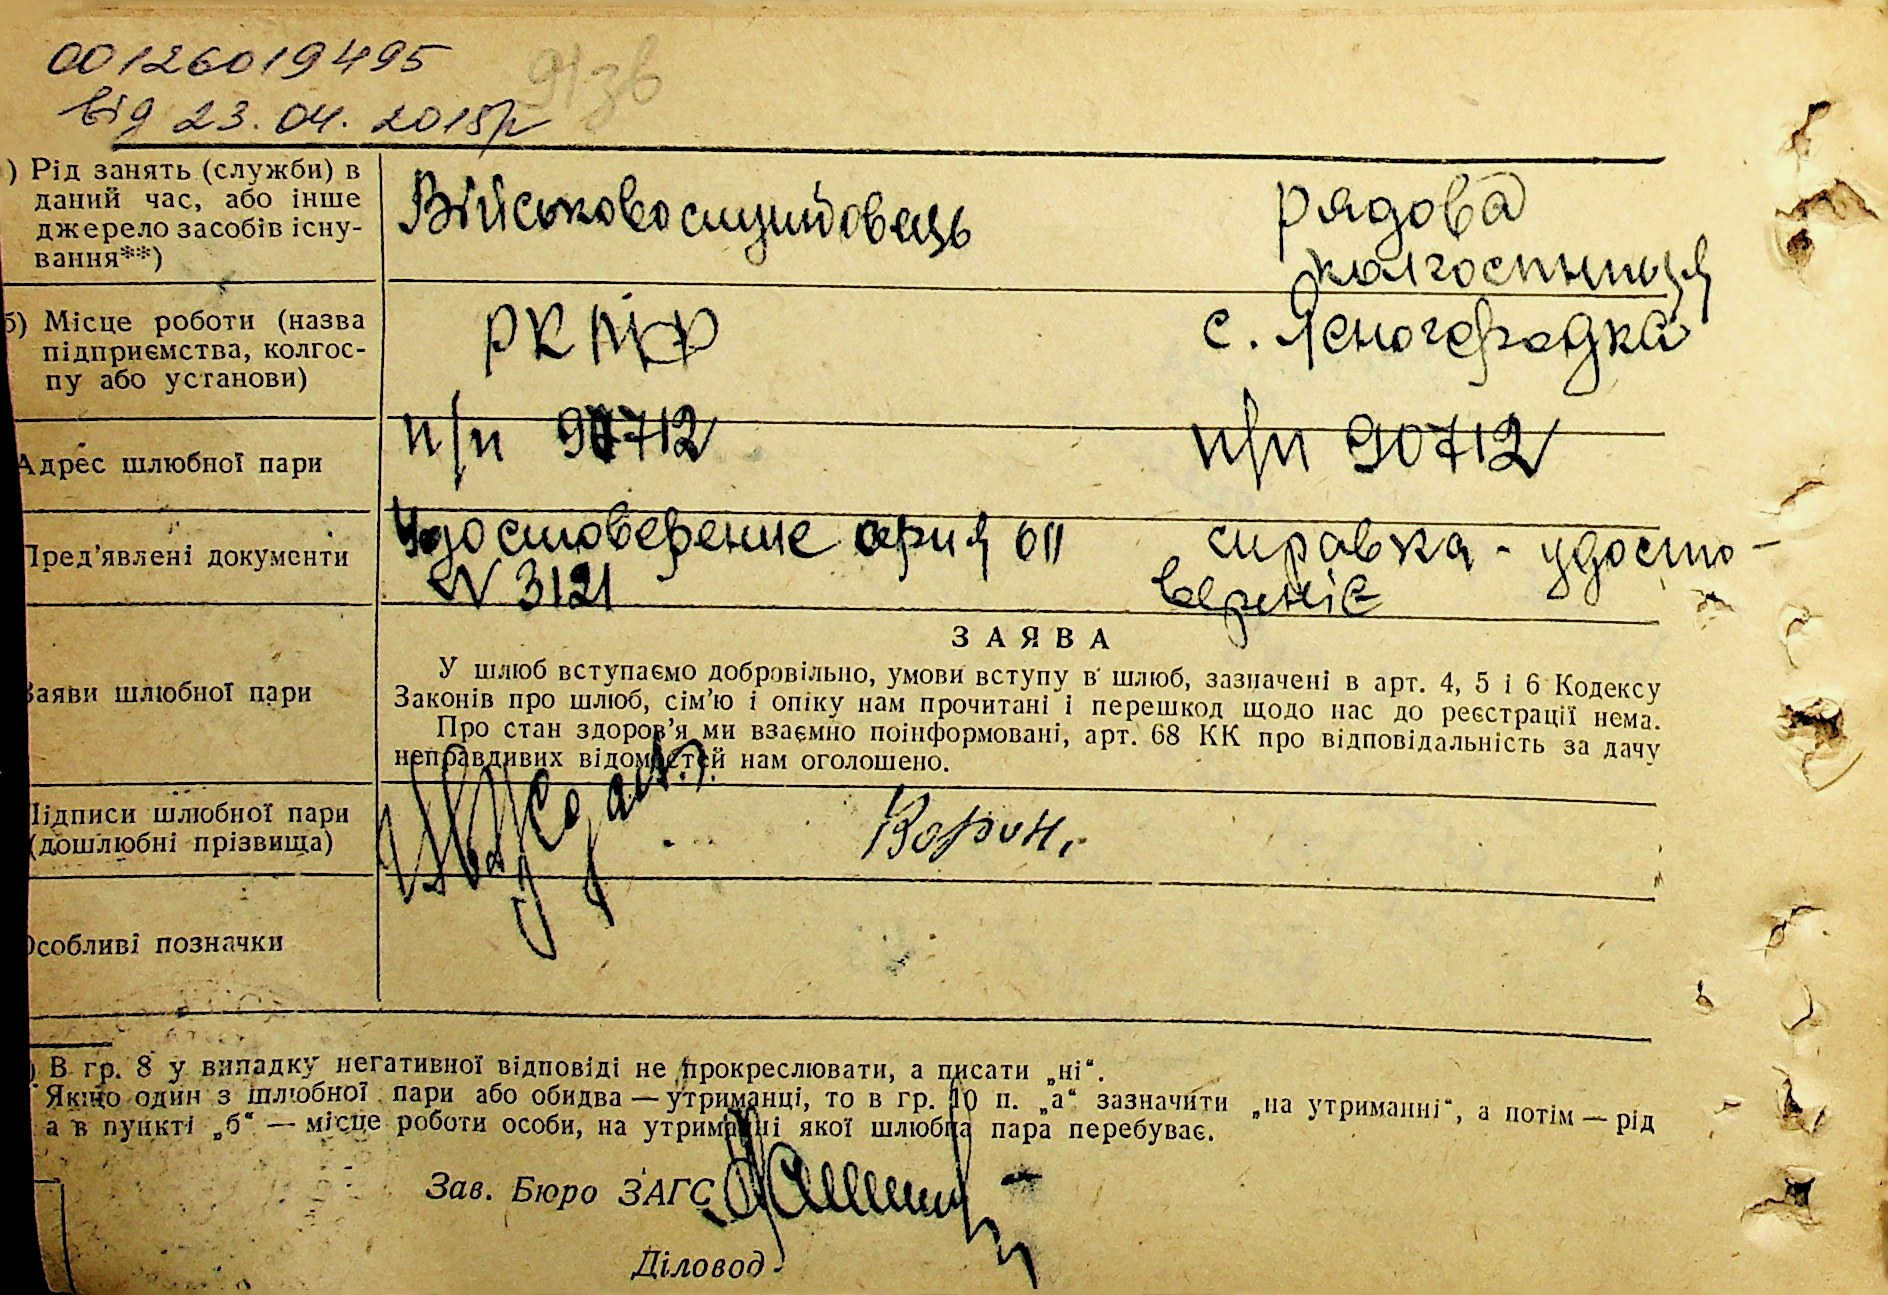 00126019495
від 23.04.2015р
91зв
) Рід занять (служби) в
даний час, або інше
джерело засобів існу-
вання**)
Військовослужбовець
рядова
колгоспниця
б) Місце роботи (назва
підприємства, колгос-
пу або установи)
с. Ясногородка
Адрес шлюбної пари
п/п 90712
п/п 90712
Пред'явлені документи
Удостоверение серия
N 3121
справка - удосто-
вереніє
ЗАЯВА
Заяви шлюбної пари
У шлюб вступаємо добровільно, умови вступу в шлюб, зазначені в арт. 4, 5 і 6 Кодексу
Законів про шлюб, сім'ю і опіку нам прочитані і перешкод щодо нас до реєстрації нема.
Про стан здоров'я ми взаємно поінформовані, арт. 68 КК про відповідальність за дачу
неправдивих відомостей нам оголошено.
Підписи шлюбної пари
(дошлюбні прізвища)
Особливі позначки
) В гр. 8 у випадку негативної відповіді не прокреслювати, а писати „ні“.
Якщо один з шлюбної пари або обидва — утриманці, то в гр. 10 п. „а“ зазначити „на утриманні“, а потім — рід
а в пункті „б“ — місце роботи особи, на утриманні якої шлюбна пара перебуває.
Зав. Бюро ЗАГС
Діловод